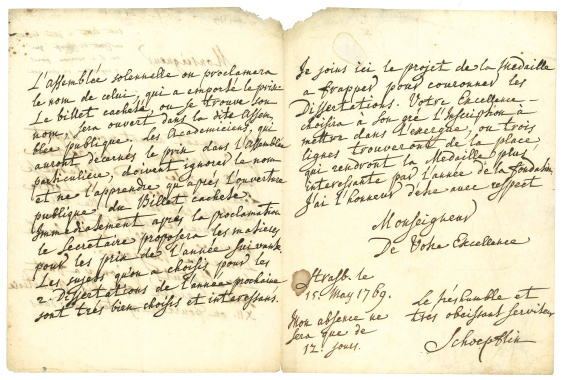 L'Assemblée solennelle ou proclamera
le nom de celui, qui a emporté le prix.
Le billet cacheté ou se trouve son
nom, sera ouvert dans la dite Assem,
blée publique. Les Academiciens, qui
auront decernés le prix dans l'Assemblée
particuliere, doivent ignorer le nom
et ne l'apprendre qu'après l'ouverture
publique du Billet cacheté.
Immediatement après la proclamation
le Secretaire proposera les matieres
pour les prix de l'année suivante.
Les sujets qu'on a choisis pour les
2. Dissertations de l'année prochaine
sont très bien choisis et interessans.
Je joins ici le projet de la Medaille
a frapper pour couronner les
Dissertations. Votre Excellence
choisira à son gré l'Inscription à
mettre dans l'exergue, ou trois
lignes trouveront de la place,
qui rendront la Medaille plus
interessante par l'année de la fondation.
J'ai l'honneur d'etre avec respect
Monseigneur
De Votre Excellence
Strasb. le
15. May 1769.
Le très humble et
très obeissant serviteur
Schoepflin
Mon absence ne
sera que de
12. jours.